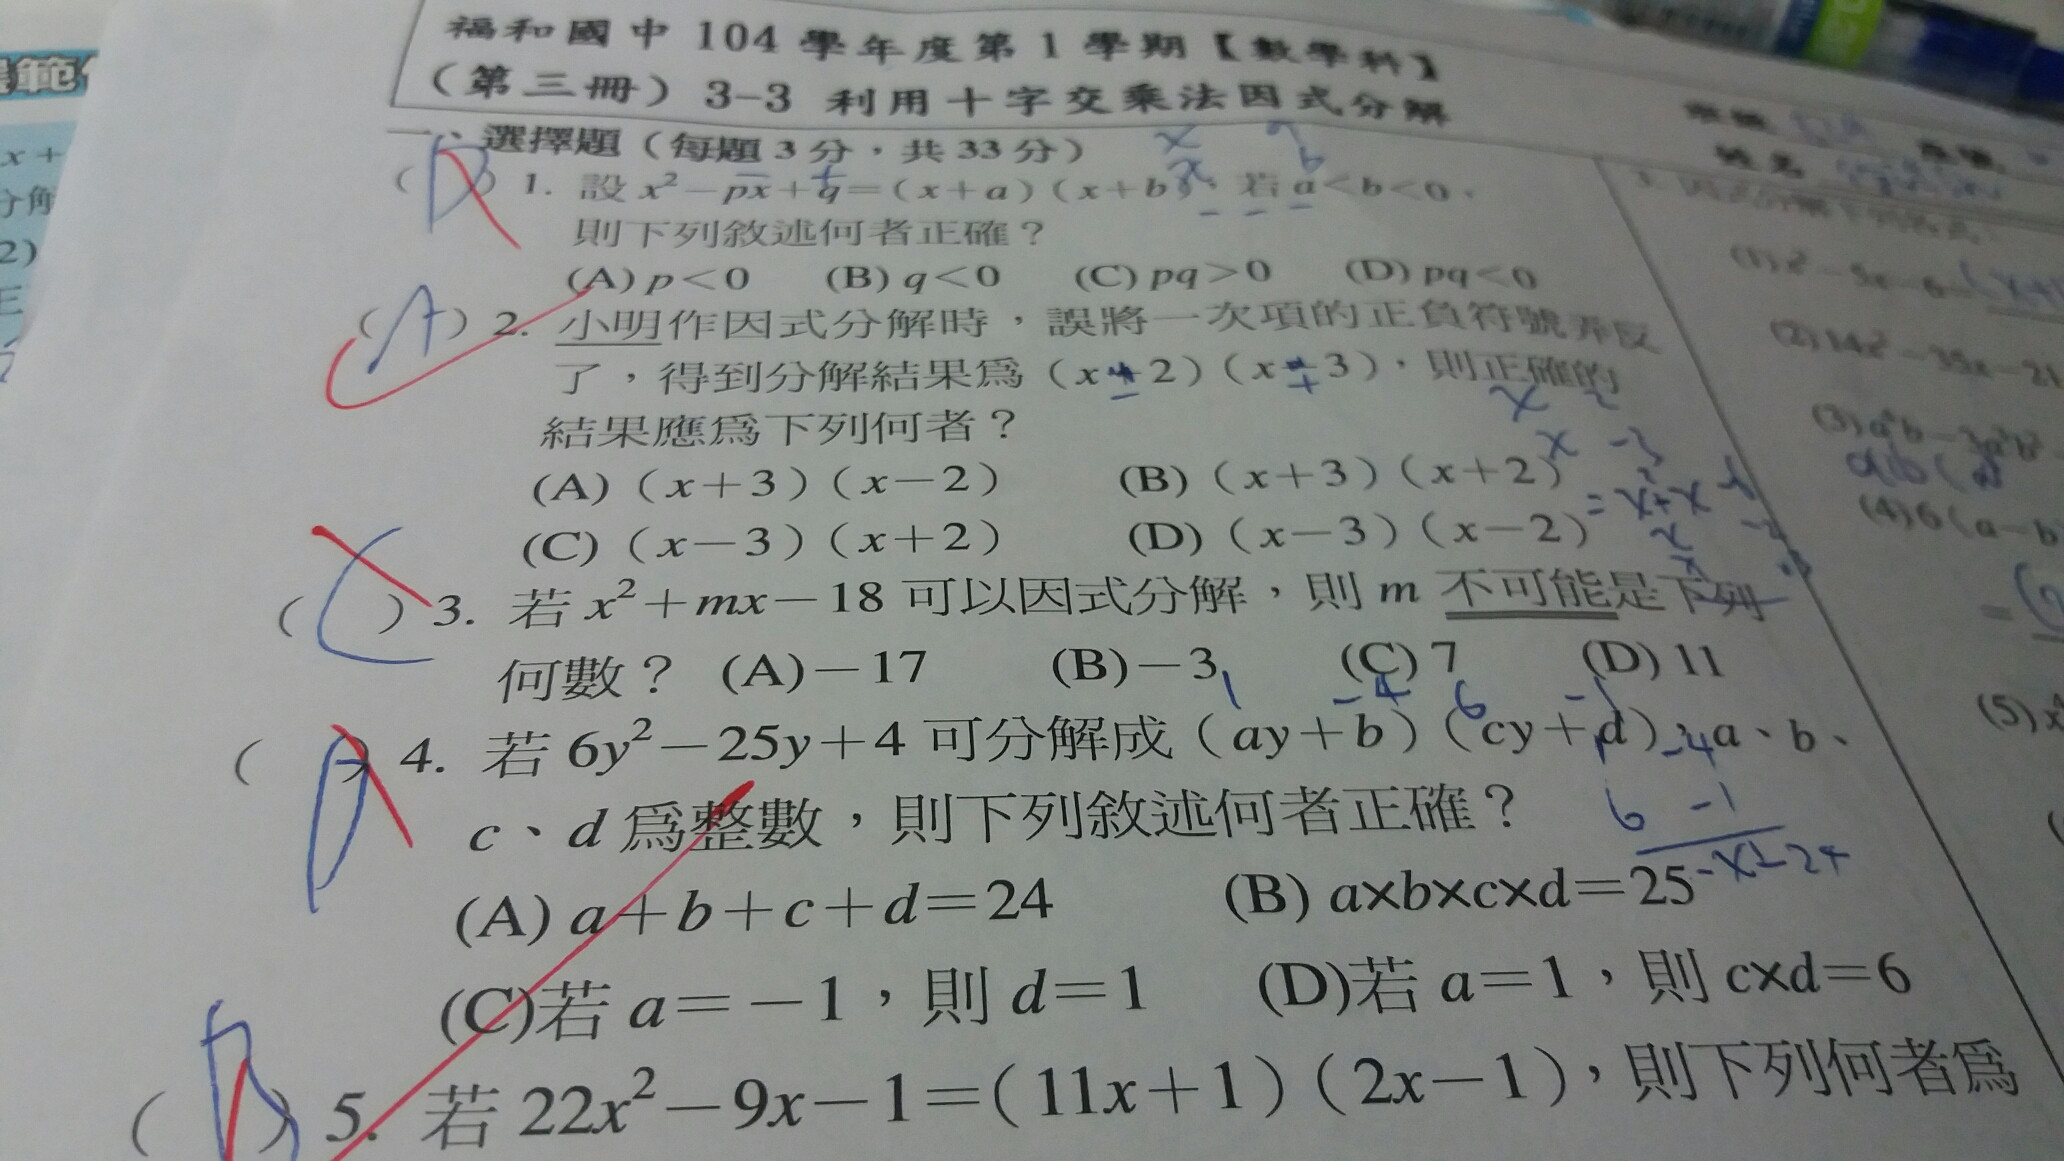 福和國中 104 學年度第 1 學期【數學科】
(第三冊) 3-3 利用十字交乘法因式分解
一、選擇題(每題3分,共33分)
( D ) 1. 設 x²-px+q=(x+a)(x+b),若 a<b<0,
則下列敘述何者正確?
(A) p<0 (B) q<0 (C) pq>0 (D) pq<0
( A ) 2. 小明作因式分解時,誤將一次項的正負符號弄反
了,得到分解結果爲(x+2)(x-3),則正確的
結果應爲下列何者?
(A)(x+3)(x-2) (B)(x+3)(x+2)
(C)(x-3)(x+2) (D)(x-3)(x-2)
( C ) 3. 若 x²+mx-18 可以因式分解,則 m 不可能是下列
何數? (A)-17 (B)-3 (C) 7 (D) 11
1 -4 6 -1
( D ) 4. 若 6y²-25y+4 可分解成(ay+b)(cy+d),a、b、
c、d 爲整數,則下列敘述何者正確?
1 -4
6 -1
-1-24
(A) a+b+c+d=24 (B) a×b×c×d=25
(C)若 a=-1,則 d=1 (D)若 a=1,則 c×d=6
( D ) 5. 若 22x²-9x-1=(11x+1)(2x-1),則下列何者爲
範
x+
分解
2)
(1)x²-5x-6=(x+1
(2)14x²-35x-21
(3)a³b-3a²b²
ab(a
(4)6(a-b
=(2
(5)x